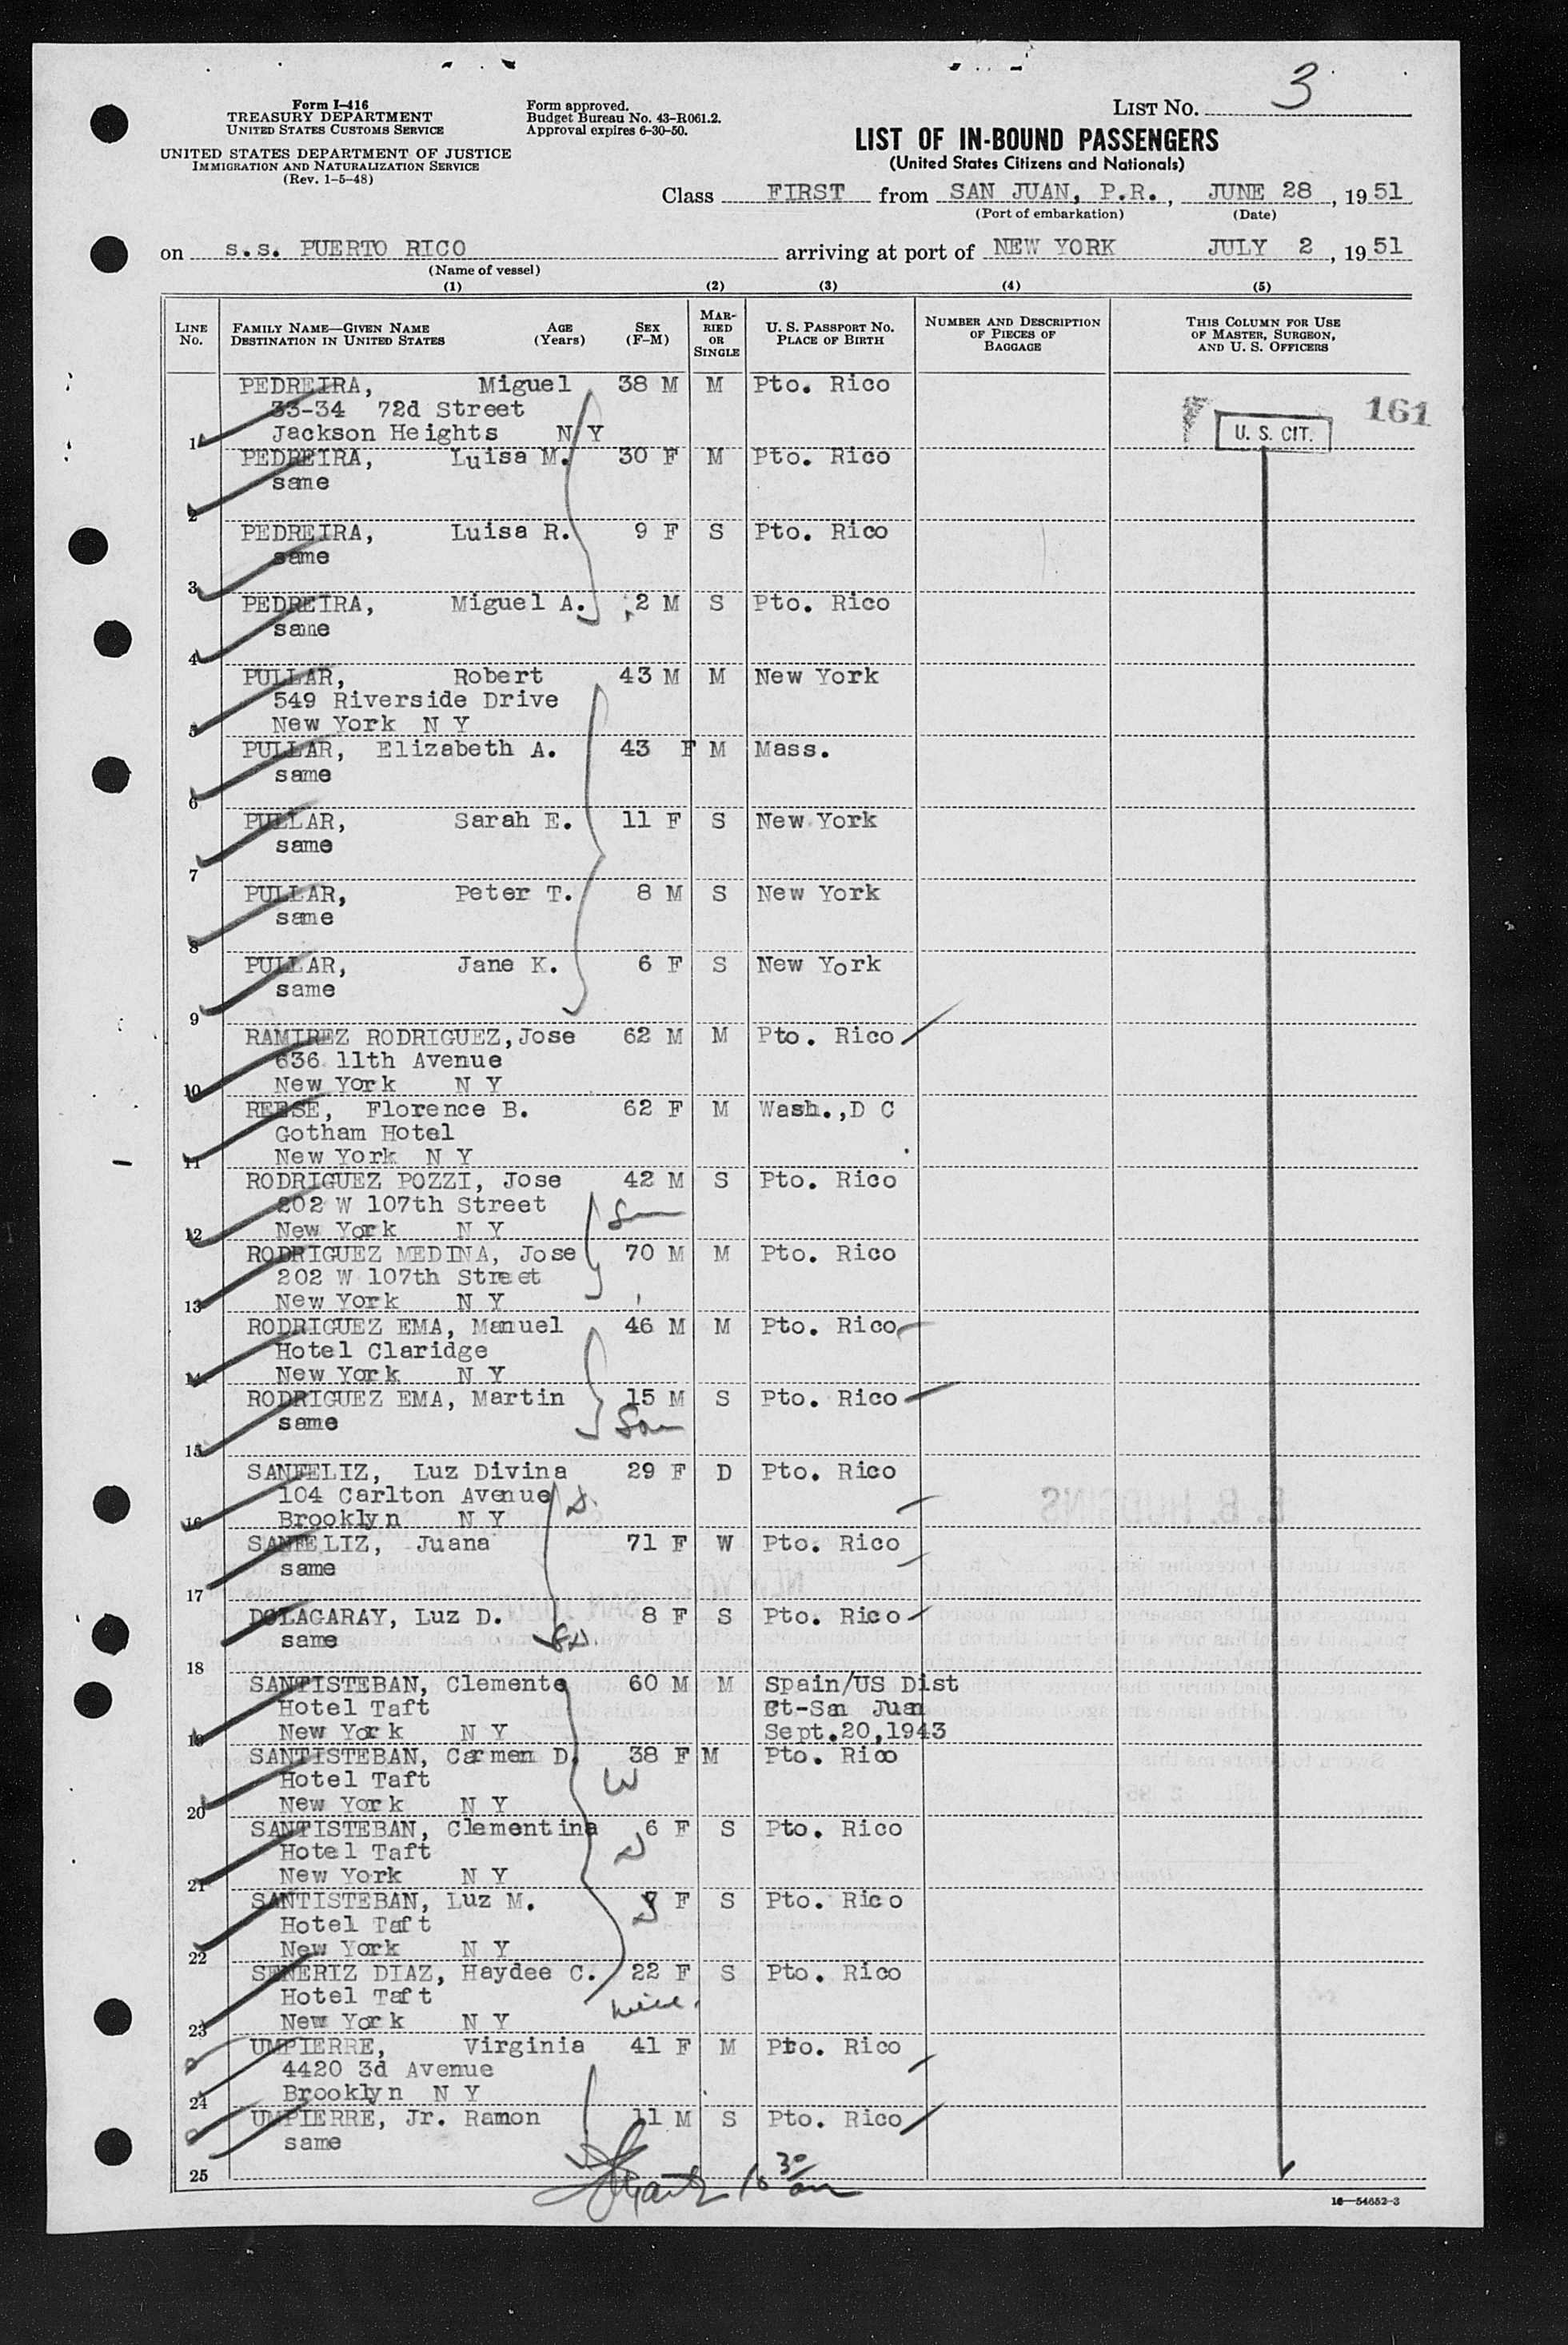 Form I-416
TREASURY DEPARTMENT
UNITED STATES CUSTOMS SERVICE
UNITED STATES DEPARTMENT OF JUSTICE
IMMIGRATION AND NATURALIZATION SERVICE
(Rev. 1-5-48)
Form approved.
Budget Bureau No. 43-R061.2.
Approval expires 6-30-50.
LIST NO. 3
LIST OF IN-BOUND PASSENGERS
(United States Citizens and Nationals)
Class FIRST from SAN JUAN, P.R., JUNE 28, 1951
(Port of embarkation) (Date)
on s.s. PUERTO RICO arriving at port of NEW YORK JULY 2, 1951
(Name of vessel)
(1) (2) (3) (4) (5)
LINE No. FAMILY NAME—GIVEN NAME DESTINATION IN UNITED STATES AGE (Years) SEX (F-M) MARRIED OR SINGLE U. S. PASSPORT NO. PLACE OF BIRTH NUMBER AND DESCRIPTION OF PIECES OF BAGGAGE THIS COLUMN FOR USE OF MASTER, SURGEON, AND U. S. OFFICERS
PEDREIRA, Miguel 38 M M Pto. Rico
33-34 72d Street 161
1 Jackson Heights N Y U. S. CIT.
PEDREIRA, Luisa M. 30 F M Pto. Rico
same
2
PEDREIRA, Luisa R. 9 F S Pto. Rico
same
3
PEDREIRA, Miguel A. 2 M S Pto. Rico
same
4
PULLAR, Robert 43 M M New York
549 Riverside Drive
5 New York N Y
PULLAR, Elizabeth A. 43 F M Mass.
same
6
PULLAR, Sarah E. 11 F S New York
same
7
PULLAR, Peter T. 8 M S New York
same
8
PULLAR, Jane K. 6 F S New York
same
9
RAMIREZ RODRIGUEZ, Jose 62 M M Pto. Rico
636 11th Avenue
10 New York N Y
REESE, Florence B. 62 F M Wash.,D C
Gotham Hotel
11 New York N Y
RODRIGUEZ POZZI, Jose 42 M S Pto. Rico
202 W 107th Street
12 New York N Y
RODRIGUEZ MEDINA, Jose 70 M M Pto. Rico
202 W 107th Street
13 New York N Y
RODRIGUEZ EMA, Manuel 46 M M Pto. Rico
Hotel Claridge
14 New York N Y
RODRIGUEZ EMA, Martin 15 M S Pto. Rico
same Son
15
SANFELIZ, Luz Divina 29 F D Pto. Rico
104 Carlton Avenue
16 Brooklyn N Y
SANFELIZ, Juana 71 F W Pto. Rico
same
17
DOLAGARAY, Luz D. 8 F S Pto. Rico
same
18
SANTISTEBAN, Clemente 60 M M Spain/US Dist
Hotel Taft Ct-San Juan
19 New York N Y Sept.20,1943
SANTISTEBAN, Carmen D. 38 F M Pto. Rico
Hotel Taft W
20 New York N Y
SANTISTEBAN, Clementina 6 F S Pto. Rico
Hotel Taft
21 New York N Y
SANTISTEBAN, Luz M. F S Pto. Rico
Hotel Taft
22 New York N Y
SENERIZ DIAZ, Haydee C. 22 F S Pto. Rico
Hotel Taft niece
23 New York N Y
UMPIERRE, Virginia 41 F M Pto. Rico
4420 3d Avenue
24 Brooklyn N Y
UMPIERRE, Jr. Ramon 11 M S Pto. Rico
same
25
16—54652-3